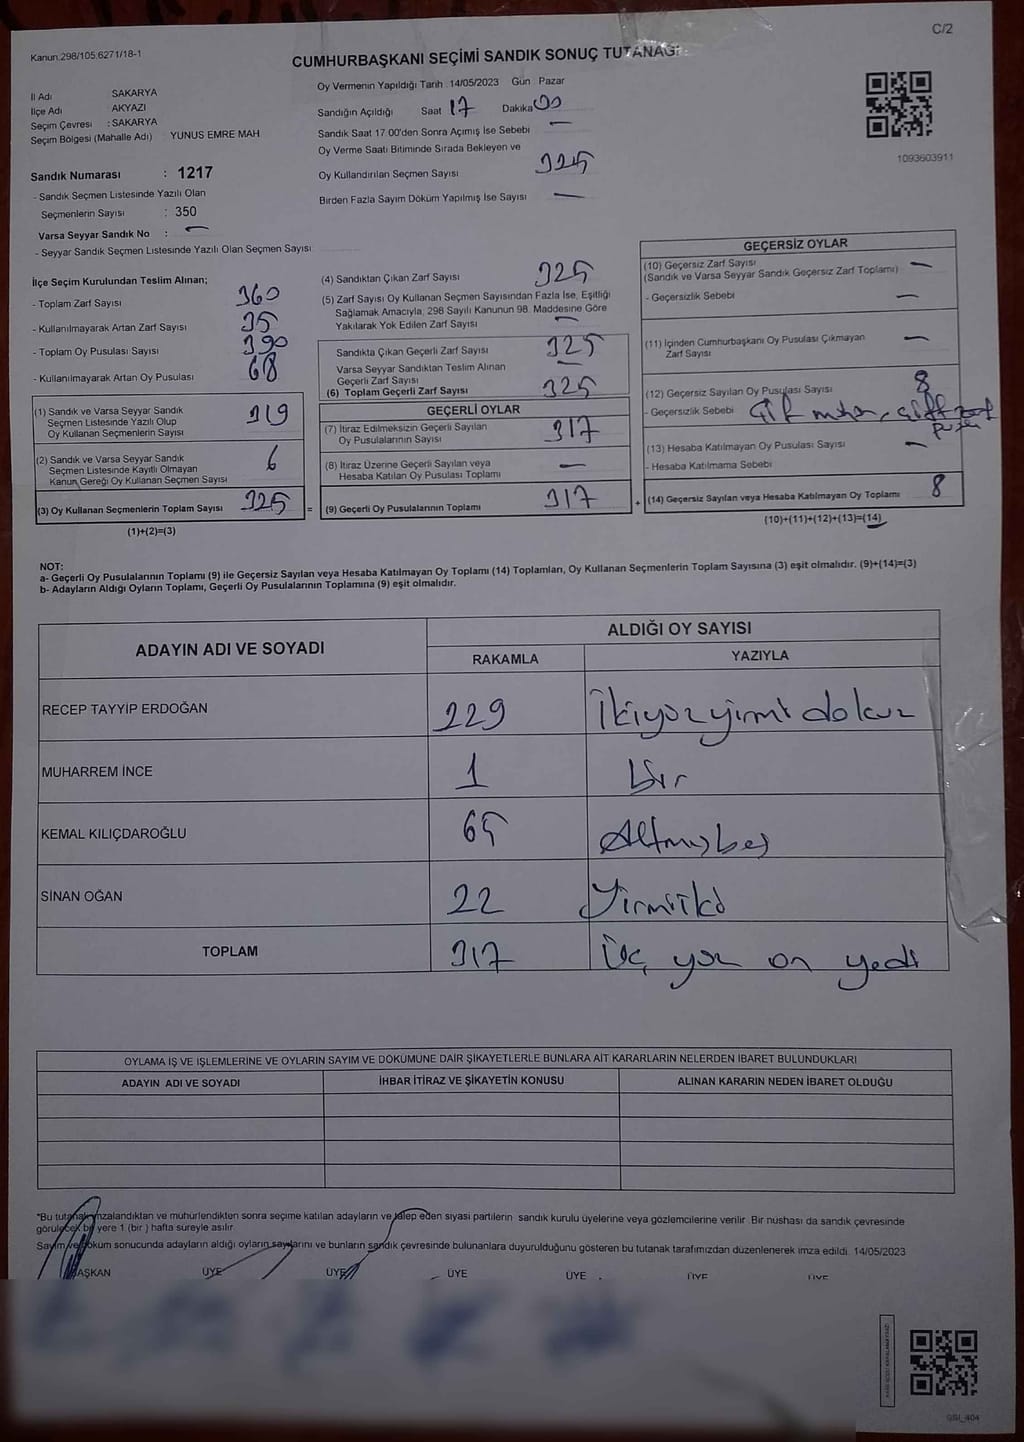 C/2
Kanun.298/105.6271/18-1
CUMHURBAŞKANI SEÇİMİ SANDIK SONUÇ TUTANAĞI
İl Adı SAKARYA
İlçe Adı AKYAZI
Seçim Çevresi : SAKARYA
Seçim Bölgesi (Mahalle Adı) YUNUS EMRE MAH
Sandık Numarası : 1217
- Sandık Seçmen Listesinde Yazılı Olan
Seçmenlerin Sayısı : 350
Varsa Seyyar Sandık No : —
- Seyyar Sandık Seçmen Listesinde Yazılı Olan Seçmen Sayısı
Oy Vermenin Yapıldığı Tarih : 14/05/2023 Gün : Pazar
Sandığın Açıldığı Saat 17 Dakika 00
Sandık Saat 17.00'den Sonra Açımış İse Sebebi —
Oy Verme Saati Bitiminde Sırada Bekleyen ve
Oy Kullandırılan Seçmen Sayısı 325
Birden Fazla Sayım Döküm Yapılmış İse Sayısı —
1093603911
İlçe Seçim Kurulundan Teslim Alınan;
- Toplam Zarf Sayısı 360
- Kullanılmayarak Artan Zarf Sayısı 35
- Toplam Oy Pusulası Sayısı 390
- Kullanılmayarak Artan Oy Pusulası 68
(1) Sandık ve Varsa Seyyar Sandık
Seçmen Listesinde Yazılı Olup
Oy Kullanan Seçmenlerin Sayısı 319
(2) Sandık ve Varsa Seyyar Sandık
Seçmen Listesinde Kayıtlı Olmayan
Kanun Gereği Oy Kullanan Seçmen Sayısı 6
(3) Oy Kullanan Seçmenlerin Toplam Sayısı 325 =
(1)+(2)=(3)
(4) Sandıktan Çıkan Zarf Sayısı 325
(5) Zarf Sayısı Oy Kullanan Seçmen Sayısından Fazla İse, Eşitliği
Sağlamak Amacıyla, 298 Sayılı Kanunun 98. Maddesine Göre
Yakılarak Yok Edilen Zarf Sayısı —
Sandıkta Çıkan Geçerli Zarf Sayısı 325
Varsa Seyyar Sandıktan Teslim Alınan
Geçerli Zarf Sayısı —
(6) Toplam Geçerli Zarf Sayısı 325
GEÇERLİ OYLAR
(7) İtiraz Edilmeksizin Geçerli Sayılan
Oy Pusulalarının Sayısı 317
(8) İtiraz Üzerine Geçerli Sayılan veya
Hesaba Katılan Oy Pusulası Toplamı —
(9) Geçerli Oy Pusulalarının Toplamı 317 +
GEÇERSİZ OYLAR
(10) Geçersiz Zarf Sayısı
(Sandık ve Varsa Seyyar Sandık Geçersiz Zarf Toplamı) —
- Geçersizlik Sebebi —
(11) İçinden Cumhurbaşkanı Oy Pusulası Çıkmayan
Zarf Sayısı —
(12) Geçersiz Sayılan Oy Pusulası Sayısı 8
- Geçersizlik Sebebi
(13) Hesaba Katılmayan Oy Pusulası Sayısı —
- Hesaba Katılmama Sebebi
(14) Geçersiz Sayılan veya Hesaba Katılmayan Oy Toplamı 8
(10)+(11)+(12)+(13)=(14)
NOT:
a- Geçerli Oy Pusulalarının Toplamı (9) ile Geçersiz Sayılan veya Hesaba Katılmayan Oy Toplamı (14) Toplamları, Oy Kullanan Seçmenlerin Toplam Sayısına (3) eşit olmalıdır. (9)+(14)=(3)
b- Adayların Aldığı Oyların Toplamı, Geçerli Oy Pusulalarının Toplamına (9) eşit olmalıdır.
ADAYIN ADI VE SOYADI ALDIĞI OY SAYISI
RAKAMLA YAZIYLA
RECEP TAYYİP ERDOĞAN 229 İkiyüzyirmi dokuz
MUHARREM İNCE 1 bir
KEMAL KILIÇDAROĞLU 65 Altmışbeş
SİNAN OĞAN 22 Yirmiiki
TOPLAM 317 Üç yüz on yedi
OYLAMA İŞ VE İŞLEMLERİNE VE OYLARIN SAYIM VE DÖKÜMÜNE DAİR ŞİKAYETLERLE BUNLARA AİT KARARLARIN NELERDEN İBARET BULUNDUKLARI
ADAYIN ADI VE SOYADI İHBAR İTİRAZ VE ŞİKAYETİN KONUSU ALINAN KARARIN NEDEN İBARET OLDUĞU
*Bu tutanak imzalandıktan ve mühürlendikten sonra seçime katılan adayların ve talep eden siyasi partilerin sandık kurulu üyelerine veya gözlemcilerine verilir. Bir nüshası da sandık çevresinde
görülecek bir yere 1 (bir) hafta süreyle asılır.
Sayım ve döküm sonucunda adayların aldığı oyların sayılarını ve bunların sandık çevresinde bulunanlara duyurulduğunu gösteren bu tutanak tarafımızdan düzenlenerek imza edildi. 14/05/2023
BAŞKAN ÜYE ÜYE ÜYE ÜYE ÜYE ÜYE